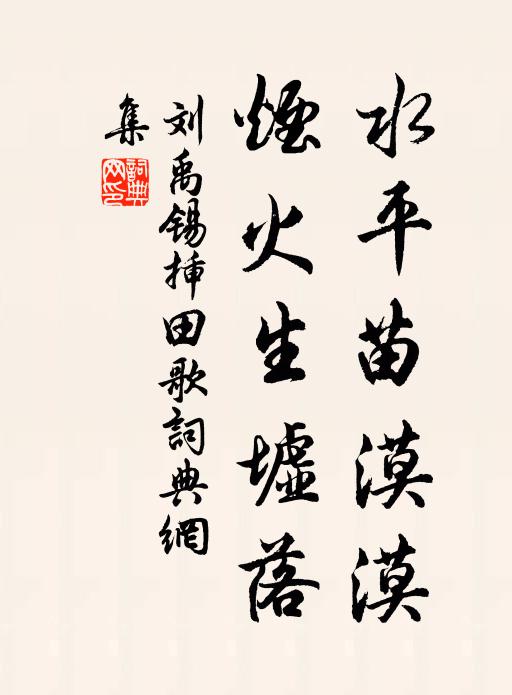 水平苗漠漠
煙火生墟落
刘禹锡揷田歌詞典網
集
詞典網印